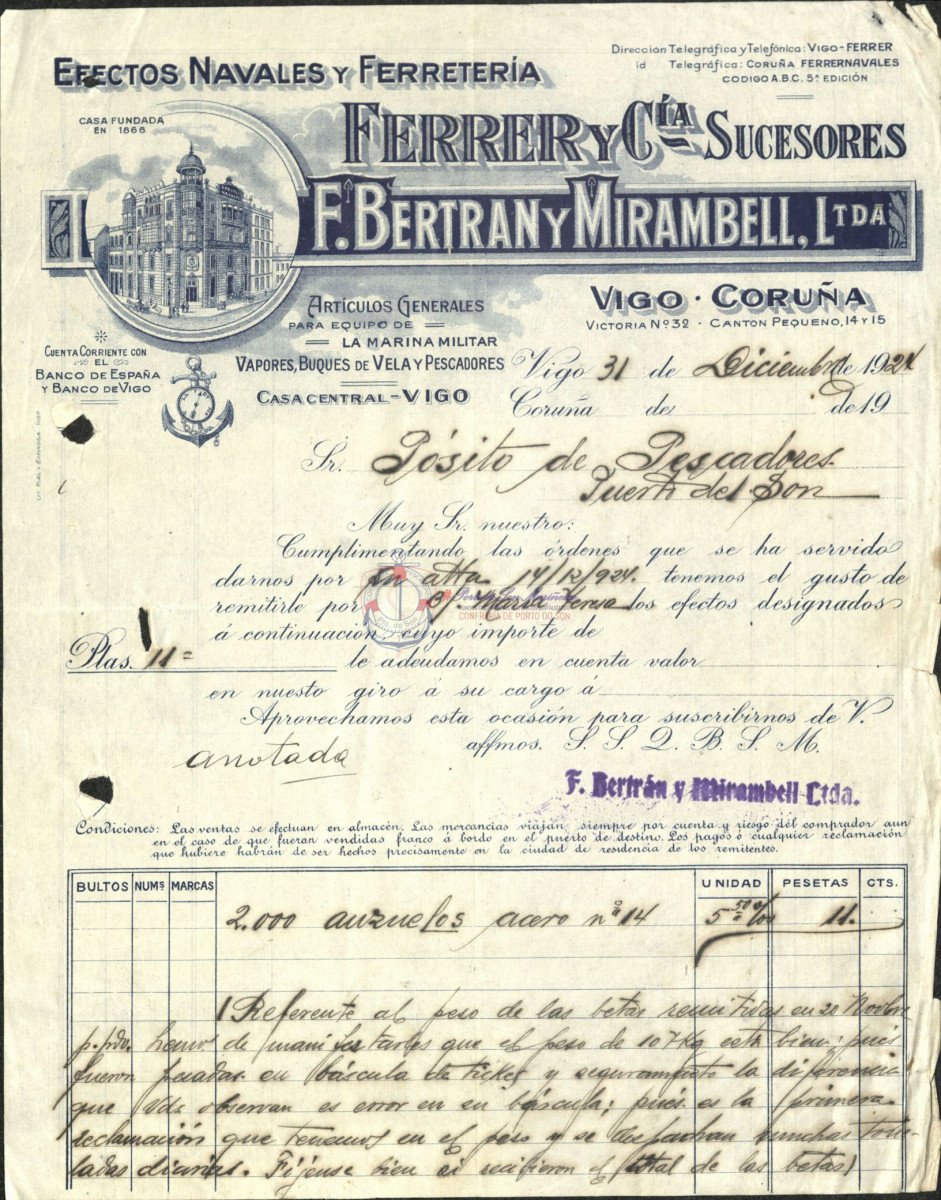 Dirección Telegráfica y Telefónica: VIGO-FERRER
id Telegráfica: CORUÑA FERRERNAVALES
CODIGO A.B.C. 5ª EDICIÓN
EFECTOS NAVALES Y FERRETERÍA
CASA FUNDADA
EN 1868
FERRER Y CÍA SUCESORES
F. BERTRAN Y MIRAMBELL, LTDA
VIGO · CORUÑA
VICTORIA Nº 32 · CANTON PEQUEÑO, 14 Y 15
ARTÍCULOS GENERALES
PARA EQUIPO DE
LA MARINA MILITAR
VAPORES, BUQUES DE VELA Y PESCADORES
CASA CENTRAL - VIGO
CUENTA CORRIENTE CON
EL
BANCO DE ESPAÑA
Y BANCO DE VIGO
Vigo 31 de Diciembre de 1924
Coruña de de 19
Sr. Pósito de Pescadores
Puerto del Son
Muy Sr. nuestro:
Cumplimentando las órdenes que se ha servido
darnos por su atta 14/12/924. tenemos el gusto de
remitirle por María Teresa los efectos designados
á continuación, cuyo importe de
Ptas. 11= le adeudamos en cuenta valor
en nuesto giro á su cargo á
Aprovechamos esta ocasión para suscribirnos de V.
affmos. S. S. Q. B. S. M.
anotada
F. Bertrán y Mirambell Ltda.
CONFRARIA DE PORTO DO SON
Condiciones: Las ventas se efectuan en almacén. Las mercancias viajan siempre por cuenta y riesgo del comprador aun
en el caso de que fueran vendidas franco á bordo en el puerto de destino. Los pagos ó cualquier reclamación
que hubiere habrán de ser hechos precisamente en la ciudad de residencia de los remitentes.
BULTOS NUMS MARCAS UNIDAD PESETAS CTS.
2.000 anzuelos acero nº 14 5,50 %00 11.
(Referente al peso de las betas remitidas en 20 Novbre
p. pdo. hemos de manifestarles que el peso de 107 Kg está bien; pues
fueron pesadas en báscula de ticket y seguramente la diferencia
que Vds observan es error en su báscula; pues es la primera
reclamación que tenemos en el peso y se despachan muchas tone-
ladas diarias. Fíjense bien si recibieron el total de las betas)